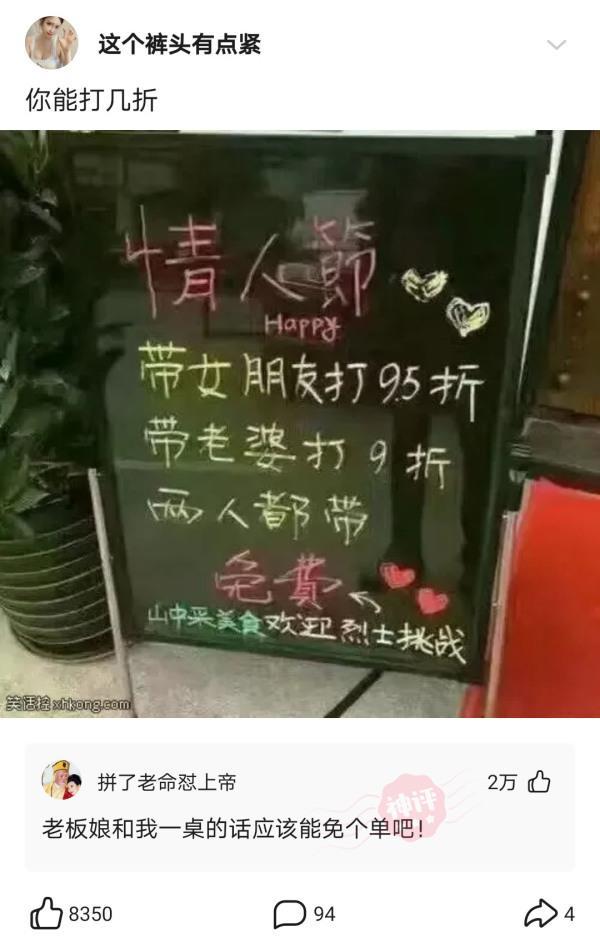 这个裤头有点紧
你能打几折
情人節
Happy
带女朋友打9.5折
带老婆打9折
两人都带
免費
山中采美食欢迎烈士挑战
笑话控xhkong.com
拼了老命怼上帝
2万
神评
老板娘和我一桌的话应该能免个单吧!
8350
94
4